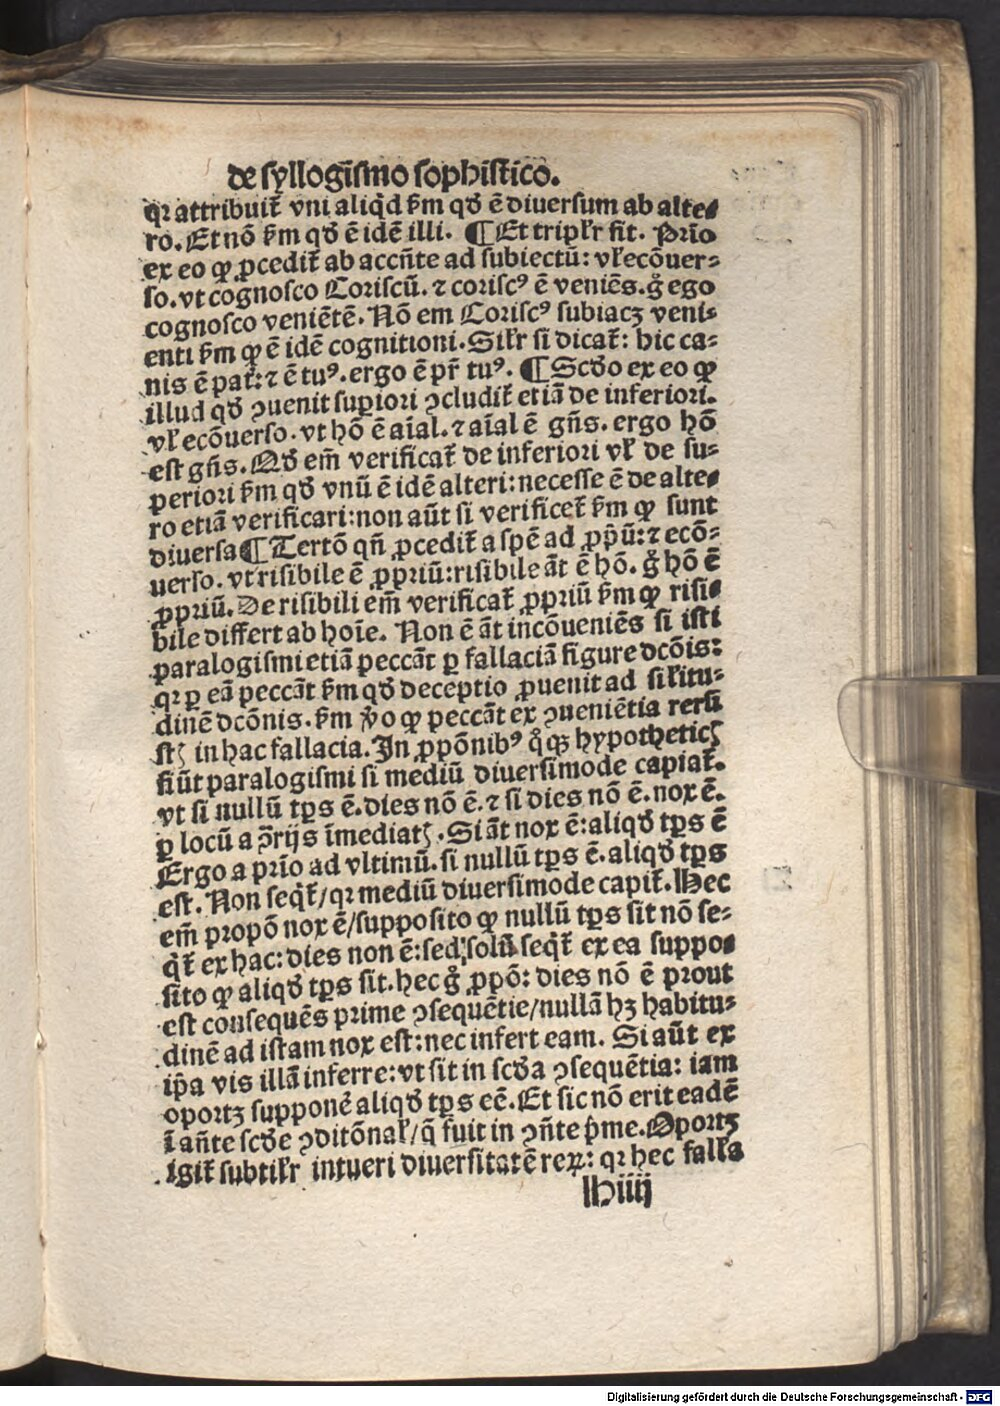 de syllogīsmo sophistico.
qꝛ attribuit᷑ vni aliqd̄ ẜm qd̛ ē diuersum ab alte⸗
ro. Et nō ẜm qd̛ ē idē illi. ¶ Et tripłr fit. Prīo
ex eo ꝙ ꝓcedit᷑ ab accn̄te ad subiectū: vł ecōuer⸗
so. vt cognosco Coriscū. ⁊ coriscꝰ ē veniēs. g̊ ego
cognosco veniētē. Nō em Coriscꝰ subiacꝫ veni⸗
enti ẜm ꝙ ē idē cognitioni. Siłr si dicat᷑: hic ca⸗
nis ē pat᷑: ⁊ ē tuꝰ. ergo ē pr̄ tuꝰ. ¶ Scd̛o ex eo ꝙ
illud qd̛ ꝯuenit superiori ꝯcludit᷑ etiā de inferiori.
vł ecōuerso. vt hō ē aīal. ⁊ aīal ē gn̄s. ergo hō
est gn̄s. Qd̛ em̄ verificat᷑ de inferiori vł de su⸗
periori ẜm qd̛ vnū ē idē alteri: necesse ē de alte⸗
ro etiā verificari: non aūt si verificet᷑ ẜm ꝙ sunt
diuersa ¶ Tertō qn̄ ꝓcedit᷑ a spē ad ꝓpū: ⁊ ecō⸗
uerso. vt risibile ē ꝓpriū: risibile āt ē hō. g̊ hō ē
ꝓpriū. De risibili em̄ verificat᷑ ꝓpriū ẜm ꝙ risi⸗
bile differt ab hoīe. Non ē āt incōueniēs si isti
paralogismi etiā peccāt ꝑ fallaciā figure dcōis:
qꝛ ꝑ eā peccāt ẜm qd̛ deceptio ꝓuenit ad siłitu⸗
dinē dcōnis. ẜm ꝟo ꝙ peccāt ex ꝯueniētia rerū
stꝭ in hac fallacia. In ꝓpōnibꝰ q̊qꝫ hypotheticꝭ
fiūt paralogismi si mediū diuersimode capiat᷑.
vt si nullū tꝑs ē. dies nō ē. ⁊ si dies nō ē. nox ē.
ꝑ locū a ꝯ̄rijs īmediatꝭ. Si āt nox ē: aliqd̛ tꝑs ē
Ergo a prīo ad vltimū. si nullū tꝑs ē. aliqd̛ tꝑs
est. Non seqt᷑/ qꝛ mediū diuersimode capit᷑. Hec
em̄ propō nox ē/ supposito ꝙ nullū tꝑs sit nō se⸗
qt᷑ ex hac: dies non ē: sed solū seqt᷑ ex ea suppo⸗
sito ꝙ aliqd̛ tꝑs sit. hec g̊ ꝓpō: dies nō ē prout
est consequēs prime ꝯsequētie/ nullā hꝫ habitu⸗
dinē ad istam nox est: nec infert eam. Si aūt ex
ip̄a vis illā inferre: vt sit in scd̛a ꝯsequētia: iam
oportꝫ supponere aliqd̛ tꝑs eē. Et sic nō erit eadē
ī an̄te scd̛e ꝯditōnał/ q̄ fuit in ꝯn̄te p̄me. Oportꝫ
igit᷑ subtiłr intueri diuersitatē reꝝ: qꝛ hec falła
h iiij
Digitalisierung gefördert durch die Deutsche Forschungsgemeinschaft - DFG